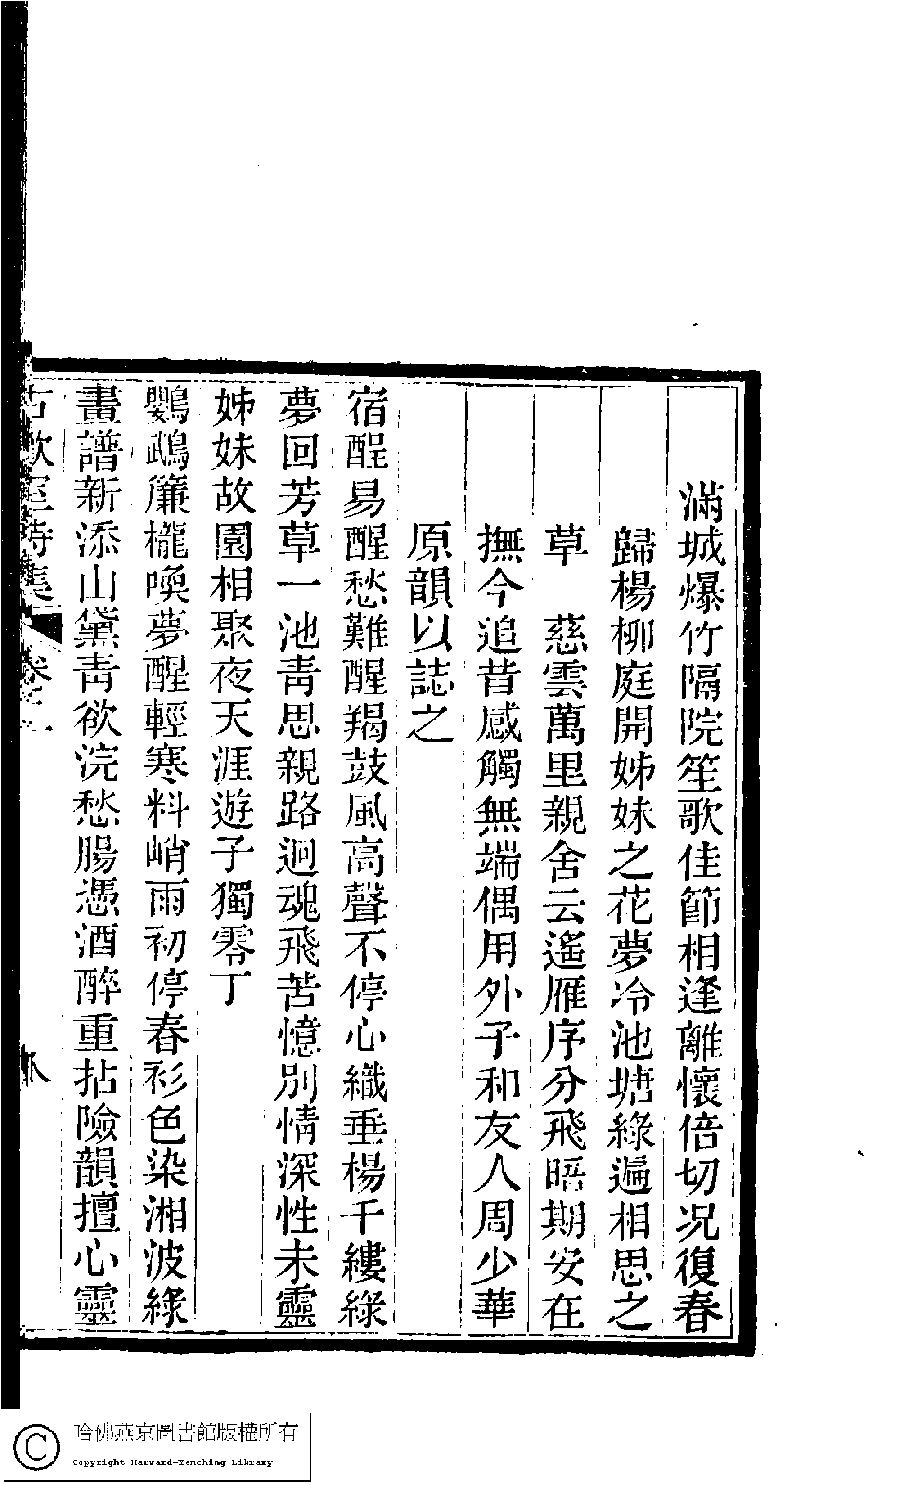 滿城爆竹隔院笙歌佳節相逢離懷倍切况復春
歸楊柳庭開姊妹之花夢冷池塘綠遍相思之
草　慈雲萬里親舍云遙雁序分飛晤期安在
撫今追昔感觸無端偶用外子和友人周少華
原韻以誌之
宿酲易醒愁難醒羯鼓風高聲不停心織垂楊千縷綠
夢回芳草一池靑思親路迥魂飛苦憶別情深性未靈
姊妹故園相聚夜天涯遊子獨零丁
鸚鵡簾櫳喚夢醒輕寒料峭雨初停春衫色染湘波綠
畫譜新添山黛靑欲浣愁腸憑酒醉重拈險韻擅心靈
古歡室詩集 卷二 八
哈佛燕京圖書館版權所有
Copyright Harvard-Yenching Library